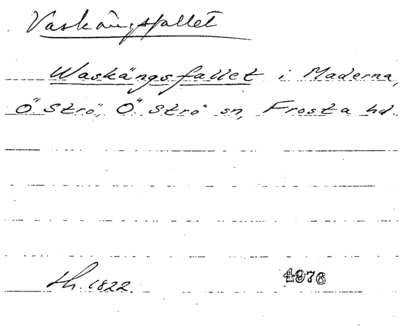 Vaskängsfallet
Waskängsfallet i Maderna,
Ö Strö, Ö Strö sn, Frosta hd
h. 1822. 4976